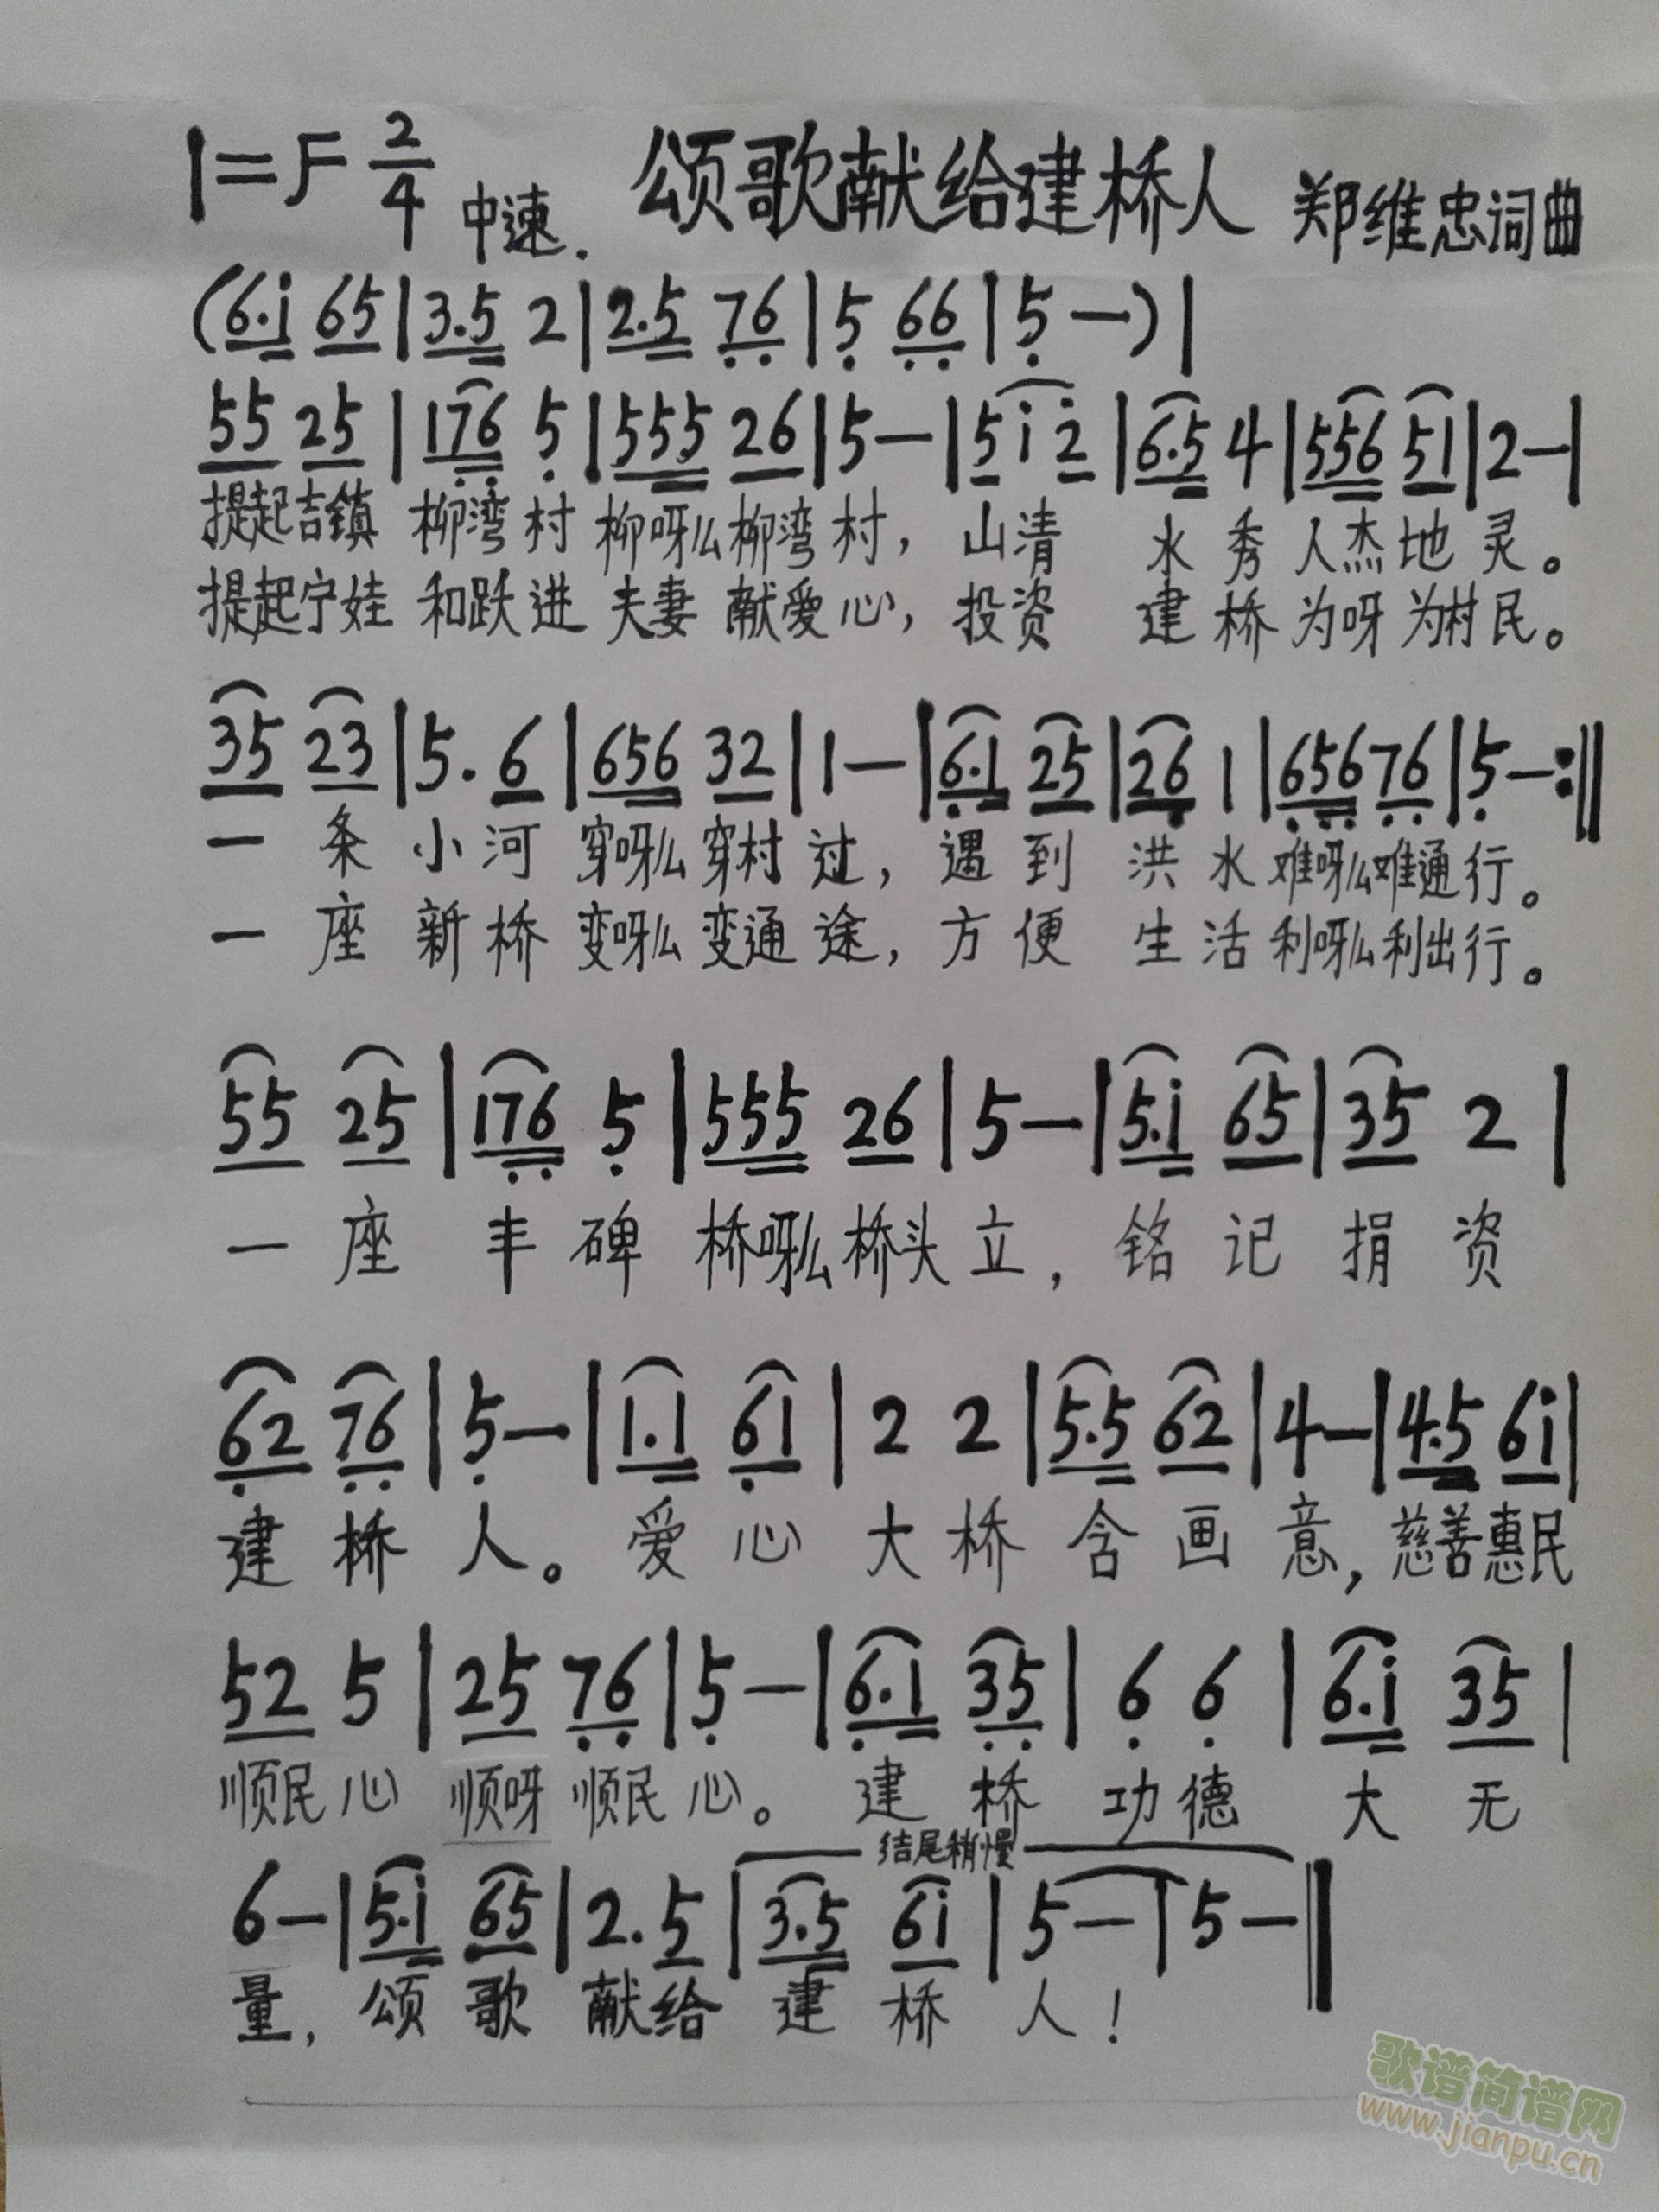 1=F 2/4 中速. 颂歌献给建桥人 郑维忠词曲
(6.i 65|3.5 2|2.5 76|5 66|5 —)|
55 25|176 5|555 26|5—|5 i 2|6.5 4|556 51|2—|
提起吉镇 柳湾村 柳呀么柳湾村，山清 水秀人杰地灵。
提起宁娃 和跃进 夫妻 献爱心，投资 建桥为呀为村民。
35 23|5. 6|656 32|1—|6.1 25|26 1|656 76|5—:‖
一条小河 穿呀么穿村过，遇到 洪水难呀么难通行。
一座新桥 变呀么变通途，方便 生活利呀么利出行。
55 25|176 5|555 26|5—|5.i 65|35 2|
一座 丰碑 桥呀么桥头立，铭记捐资
62 76|5—|1.1 61|2 2|5.5 62|4—|4.5 6i|
建桥人。爱心大桥含画意，慈善惠民
52 5|25 76|5—|6.1 35|6 6|6.i 35|
顺民心 顺呀顺民心。建桥功德 大无
结尾稍慢
6—|5.i 65|2. 5|3.5 6i|5—|5—‖
量，颂歌献给建桥人！
歌谱简谱网
www.jianpu.cn